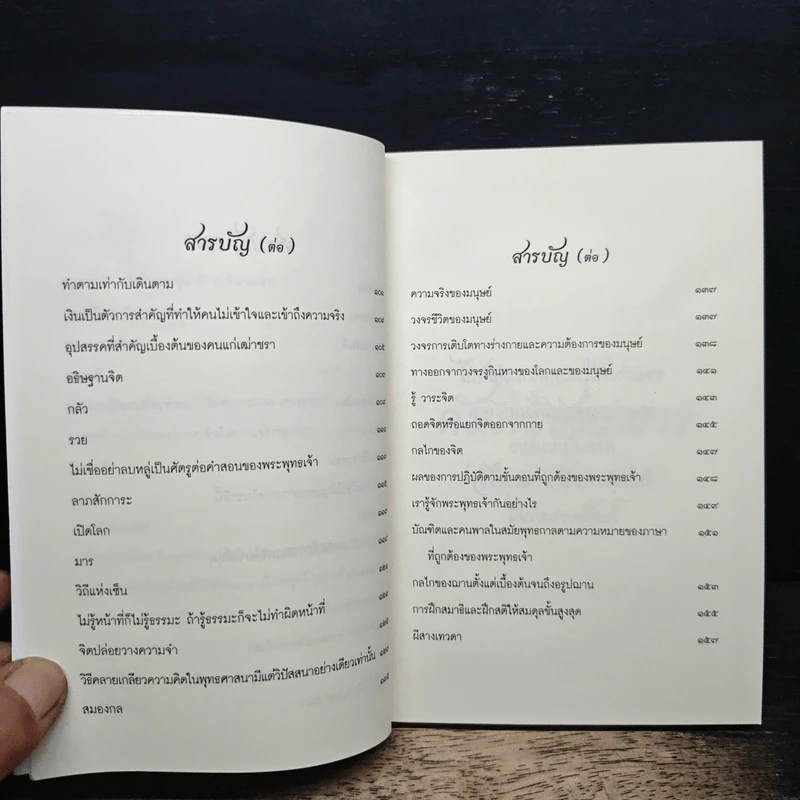 สารบัญ (ต่อ)
ทำตามเท่ากับเดินตาม ๑๐๑
เงินเป็นตัวการสำคัญที่ทำให้คนไม่เข้าใจและเข้าถึงความจริง
อุปสรรคที่สำคัญเบื้องต้นของคนแก่เฒ่าชรา ๑๐๕
อธิษฐานจิต
กลัว
รวย
ไม่เชื่ออย่าลบหลู่เป็นศัตรูต่อคำสอนของพระพุทธเจ้า
ลาภสักการะ
เปิดโลก
มาร
วิถีแห่งเซ็น
ไม่รู้หน้าที่ก็ไม่รู้ธรรมะ ถ้ารู้ธรรมะก็จะไม่ทำผิดหน้าที่
จิตปล่อยวางความจำ
วิธีคลายเกลียวความคิดในพุทธศาสนามีแต่วิปัสสนาอย่างเดียวเท่านั้น
สมองกล
สารบัญ (ต่อ)
ความจริงของมนุษย์ ๑๓๗
วงจรชีวิตของมนุษย์ ๑๓๗
วงจรการเติบโตทางร่างกายและความต้องการของมนุษย์ ๑๓๘
ทางออกจากวงจรงูกินหางของโลกและของมนุษย์ ๑๔๑
รู้ วาระจิต ๑๔๓
ถอดจิตหรือแยกจิตออกจากกาย ๑๔๕
กลไกของจิต ๑๔๗
ผลของการปฏิบัติตามขั้นตอนที่ถูกต้องของพระพุทธเจ้า ๑๔๘
เรารู้จักพระพุทธเจ้ากันอย่างไร ๑๔๙
บัณฑิตและคนพาลในสมัยพุทธกาลตามความหมายของภาษา ๑๕๑
ที่ถูกต้องของพระพุทธเจ้า
กลไกของฌานตั้งแต่เบื้องต้นจนถึงอรูปฌาน ๑๕๓
การฝึกสมาธิและฝึกสติให้สมดุลขั้นสูงสุด ๑๕๕
ผีสางเทวดา ๑๕๗